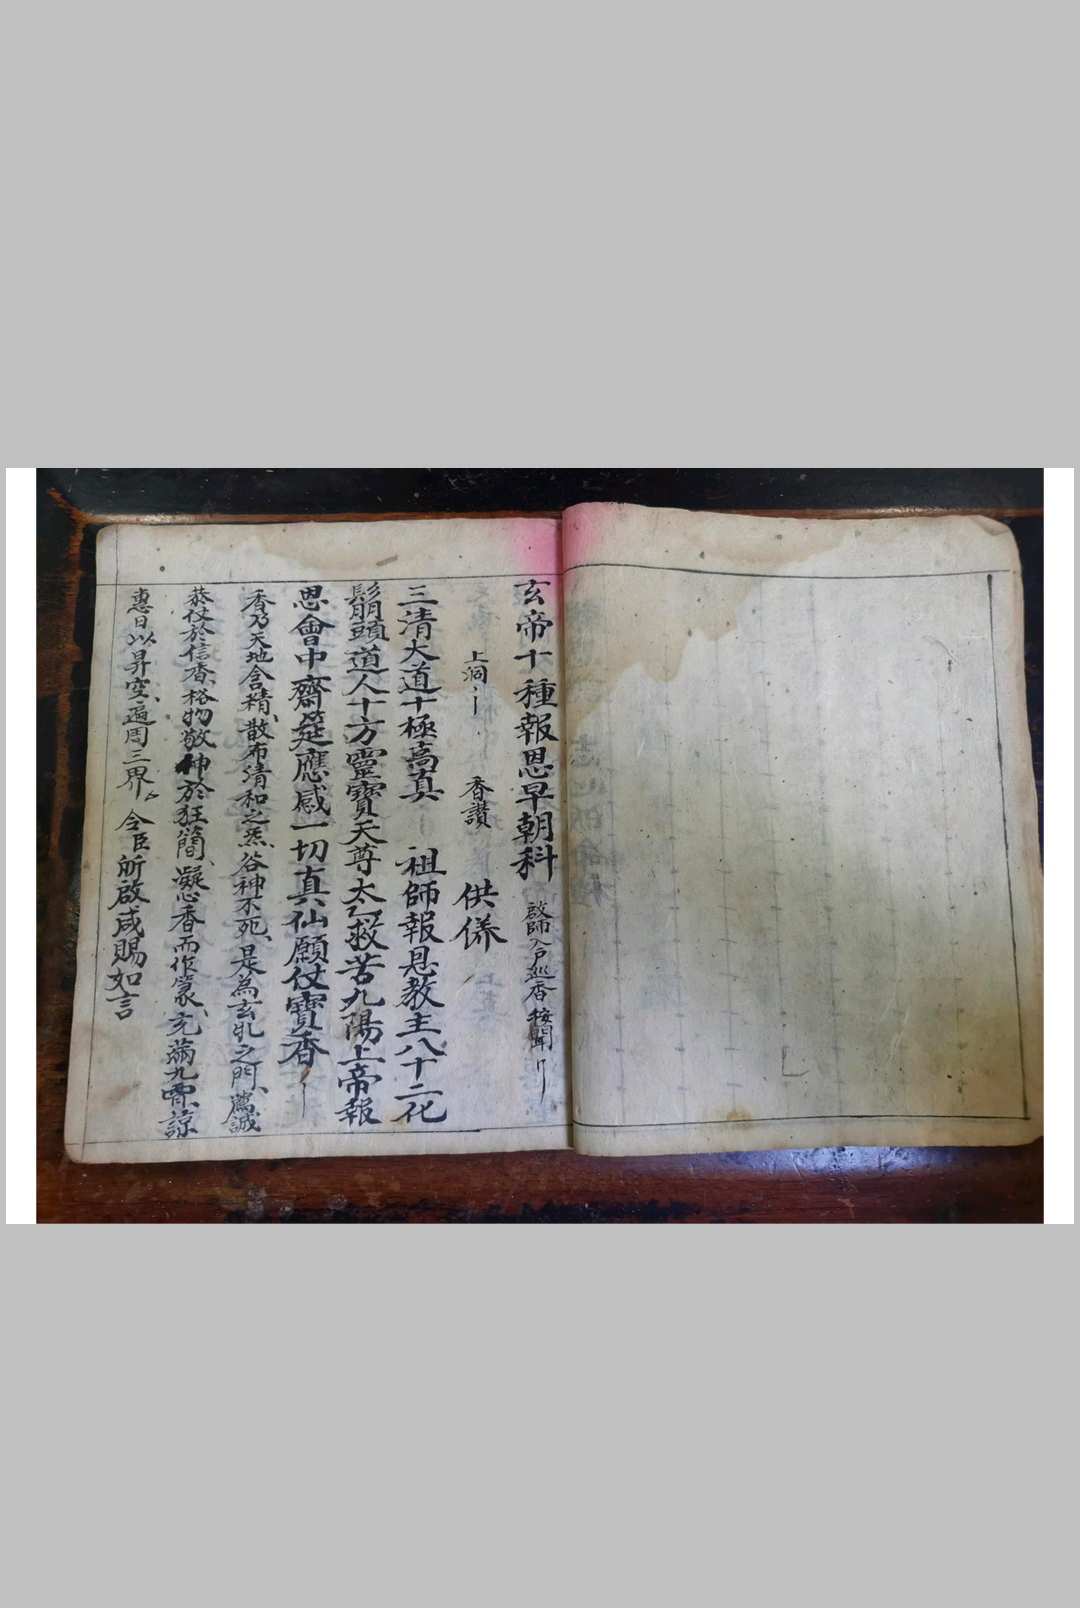 玄帝十種報恩早朝科 啟師入戶巡香 按聞
上洞 香讚 供養
三清大道十極高真 祖師報恩教主八十二化
鬅頭道人十方靈寶天尊太乙救苦九陽上帝報
恩會中齋筵應感一切真仙願仗寶香
香乃天地含精、散布清和之炁、谷神不死、是為玄牝之門、薦誠
恭仗於信香、格物敬神於狂簡、凝心香而作篆、充滿九霄、諒
惠日以昇空、遍周三界。 令臣所啟咸賜如言